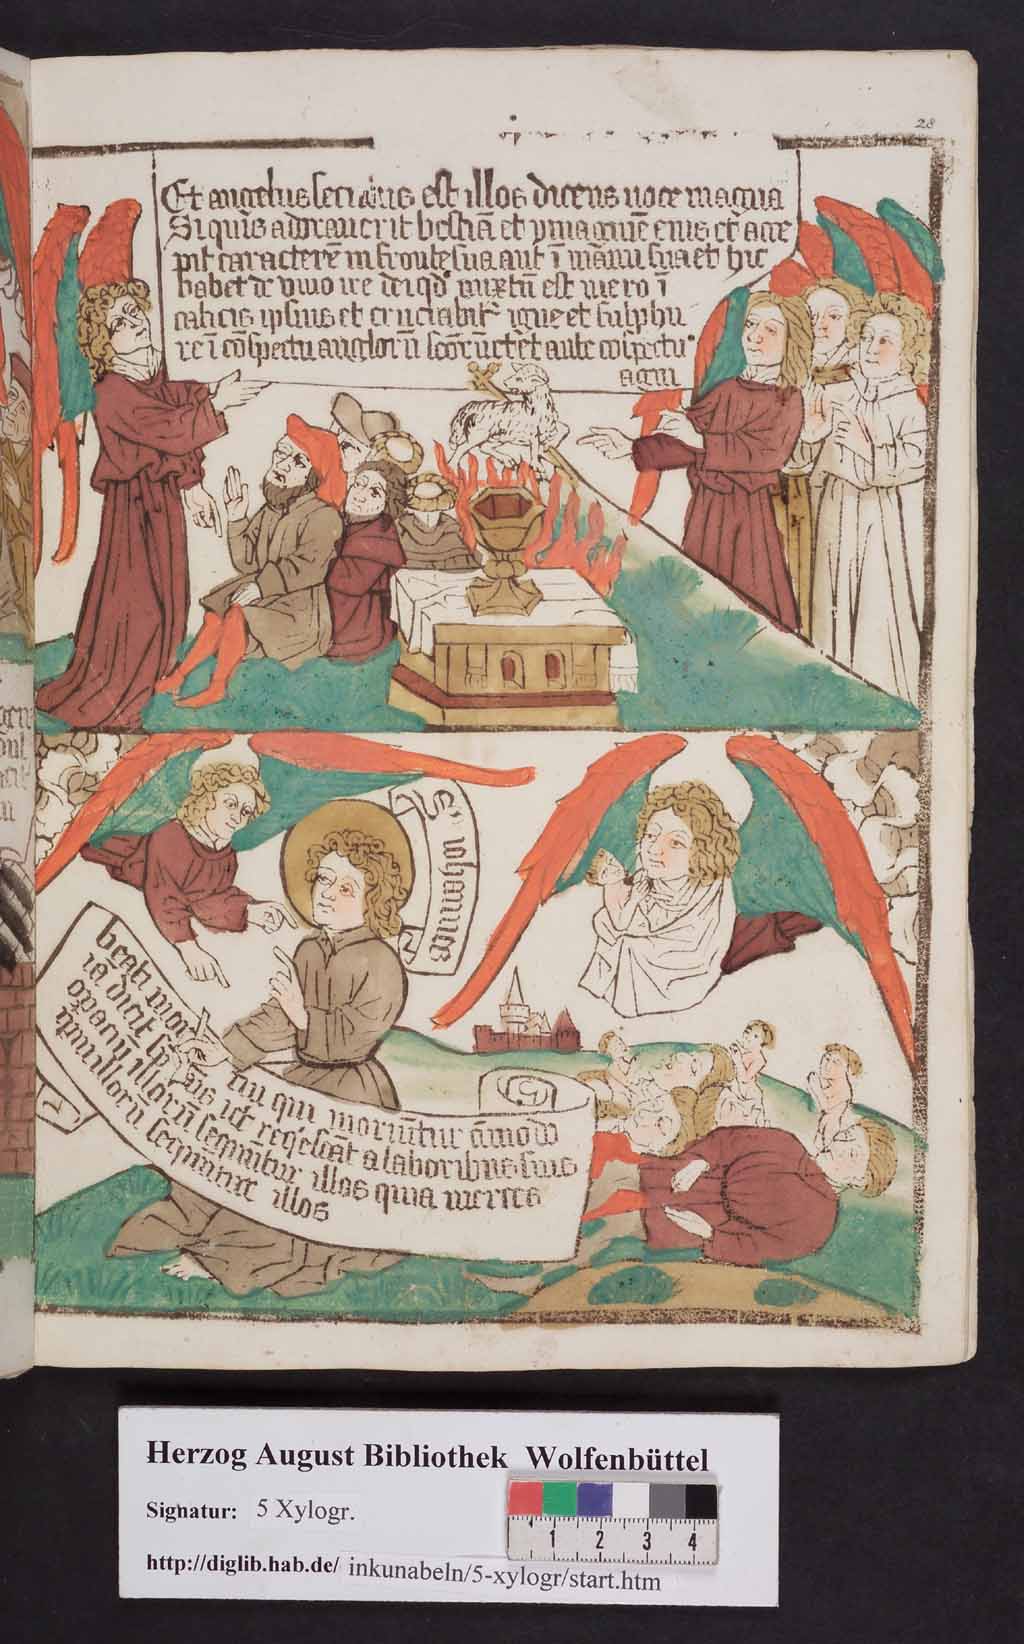 28
Et angelus secutus est illos dicens uoce magna
Si quis adorauerit bestiā et ymaginē eius et acce
pit caracterē in fronte sua aut ī manu sua et hic
babet de vino ire dei qd' mixtū est mero ī
calicis ipsius et cruciabit' igne et sulphu
re ī cōspectu anglorū scōr̄ et ante cōspectu
agni
S' iohannes
beati mor tui qui moriūtur āmodo
iā dicit sp̄s ut reqiescāt a laboribus suis
opa illorū sequūtur illos quia merces
illorū sequntur illos
Herzog August Bibliothek Wolfenbüttel
Signatur: 5 Xylogr.
1 2 3 4
http://diglib.hab.de/ inkunabeln/5-xylogr/start.htm